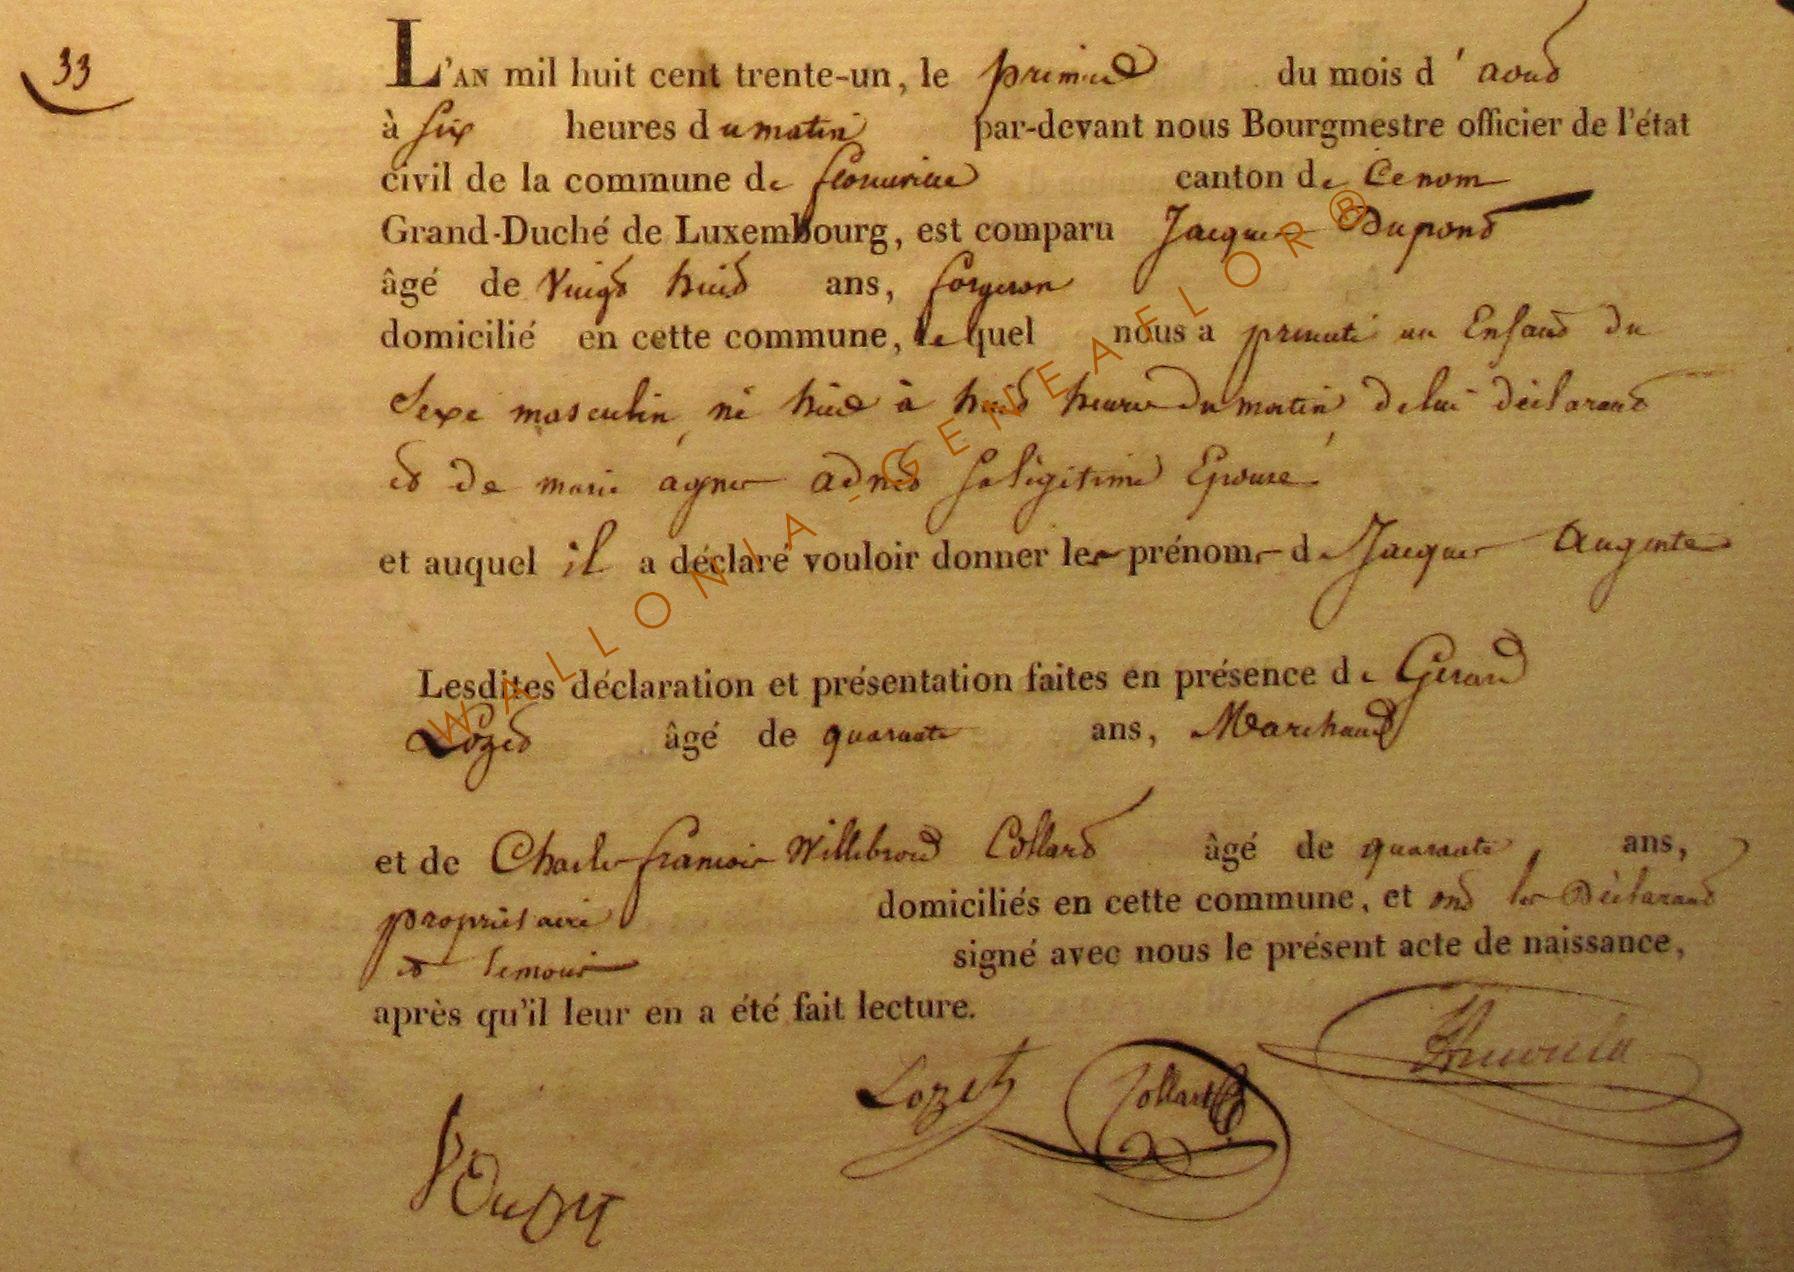 33
L'AN mil huit cent trente-un, le premier du mois d'aout
à six heures du matin par-devant nous Bourgmestre officier de l'état
civil de la commune de canton de
Grand-Duché de Luxembourg, est comparu Jacques Dupont
âgé de Vingt huit ans, forgeron
domicilié en cette commune, le quel nous a presenté un Enfant du
Sexe masculin, né hier à huit heures du matin de lui déclarant
et de marie agnes adnet Sa légitime Epouse
et auquel il a déclaré vouloir donner les prénoms de Jacques
Lesdites déclaration et présentation faites en présence de Gerard
Lozet âgé de quarante ans, Marchand
et de Charles francois Willebrord Collard âgé de quarante ans,
propriétaire domiciliés en cette commune, et ont les Déclarant
et temoins signé avec nous le présent acte de naissance,
après qu'il leur en a été fait lecture.
Lozet Collart
WALLONIA - GENEAFLOR®